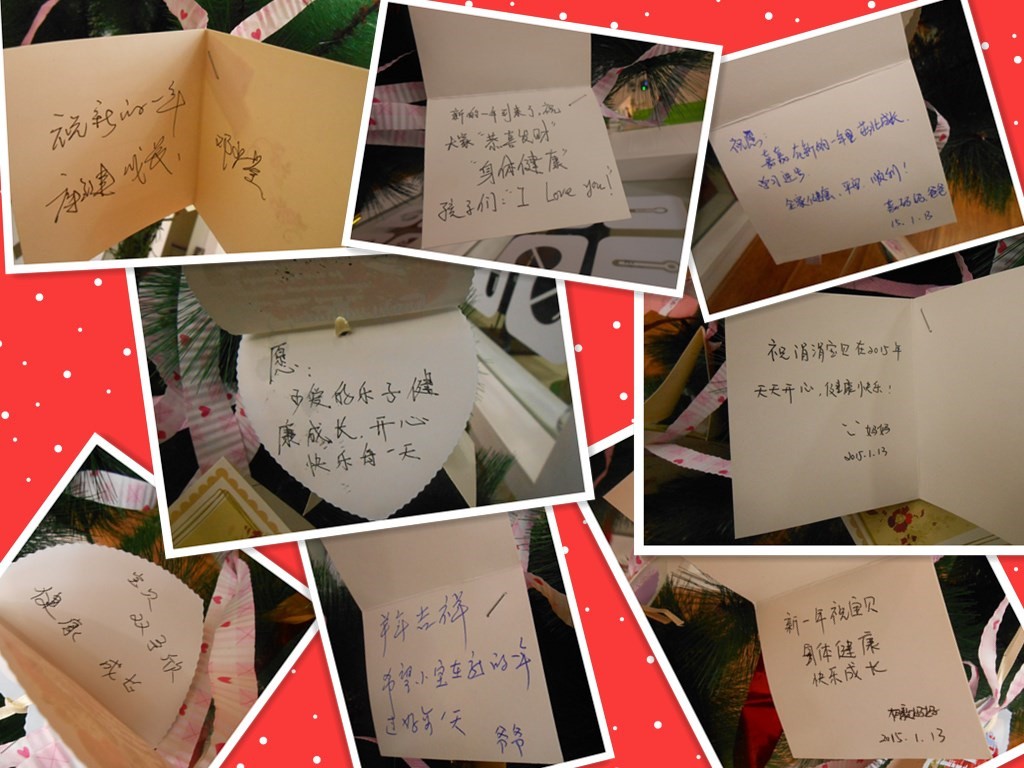 祝新的一年
康健成长！
新的一年到来了，祝
大家“恭喜发财”
“身体健康”
孩子们：“I Love you！”
祝愿：
嘉嘉在新的一年里茁壮成长、
学习进步
全家健康、平安、顺利！
爸爸
15.1.13
愿：
可爱的乐子健
康成长，开心
快乐每一天
祝涓涓宝贝在2015年
天天开心，健康快乐！
妈妈
2015.1.13
宝贝
健康 成长
羊年吉祥
希望小宝在新的一年
过好每一天
爷爷
新一年祝宝贝
身体健康
快乐成长
妈妈
2015.1.13